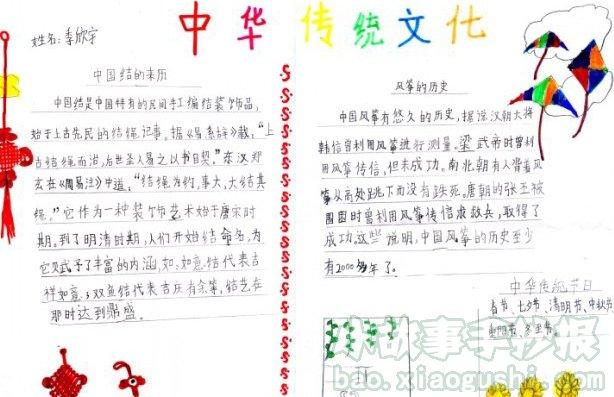 中华传统文化
姓名:李欣宇
中国结的来历
中国结是中国特有的民间手工编结装饰品,
始于上古先民的结绳记事。据《易系辞》载,"上
古结绳而治,后世圣人易之以书目契。"东汉郑
玄在《周易注》中道,"结绳为钓,事大,大结其
绳。"它作为一种装饰艺术始于唐宋时
期。到了明清时期,人们开始结命名,为
它赋予了丰富的内涵,如,如意结代表吉
祥如意;双鱼结代表吉庆有余等,结艺在
那时达到鼎盛。
风筝的历史
中国风筝有悠久的历史,据说汉朝大将
韩信曾利用风筝进行测量。梁武帝时曾利
用风筝传信,但未成功。南北朝有人背着风
筝从高处跳下而没有跌死。唐朝的张丕被
围困时曾利用风筝传信求救兵,取得了
成功。这些说明,中国风筝的历史至少
有2000多年了。
中华传统节日
春节、七夕节、清明节、中秋节
重阳节、冬至节
小故事手抄报
bao.xiaogushi.com